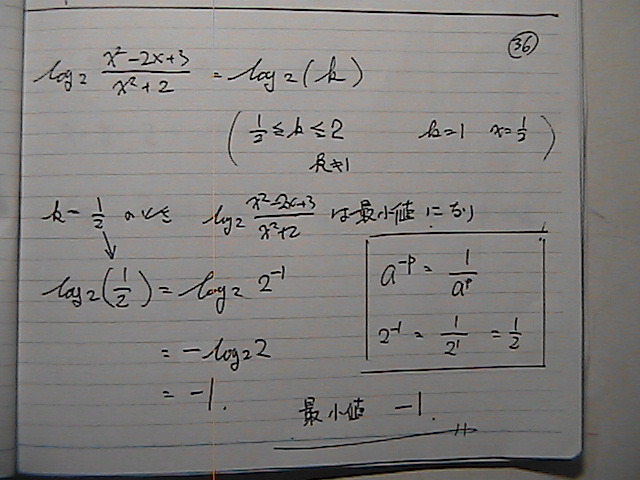 36
log₂ (x²-2x+3)/(x²+2) = log₂(k)
(1/2 ≤ k ≤ 2 k=1 x=1/2)
k≠1
k=1/2 のとき log₂ (x²-2x+3)/(x²+2) は最小値になり
log₂(1/2) = log₂ 2⁻¹
= -log₂2
= -1.
a⁻ᵖ = 1/aᵖ
2⁻¹ = 1/2¹ = 1/2
最小値 -1.